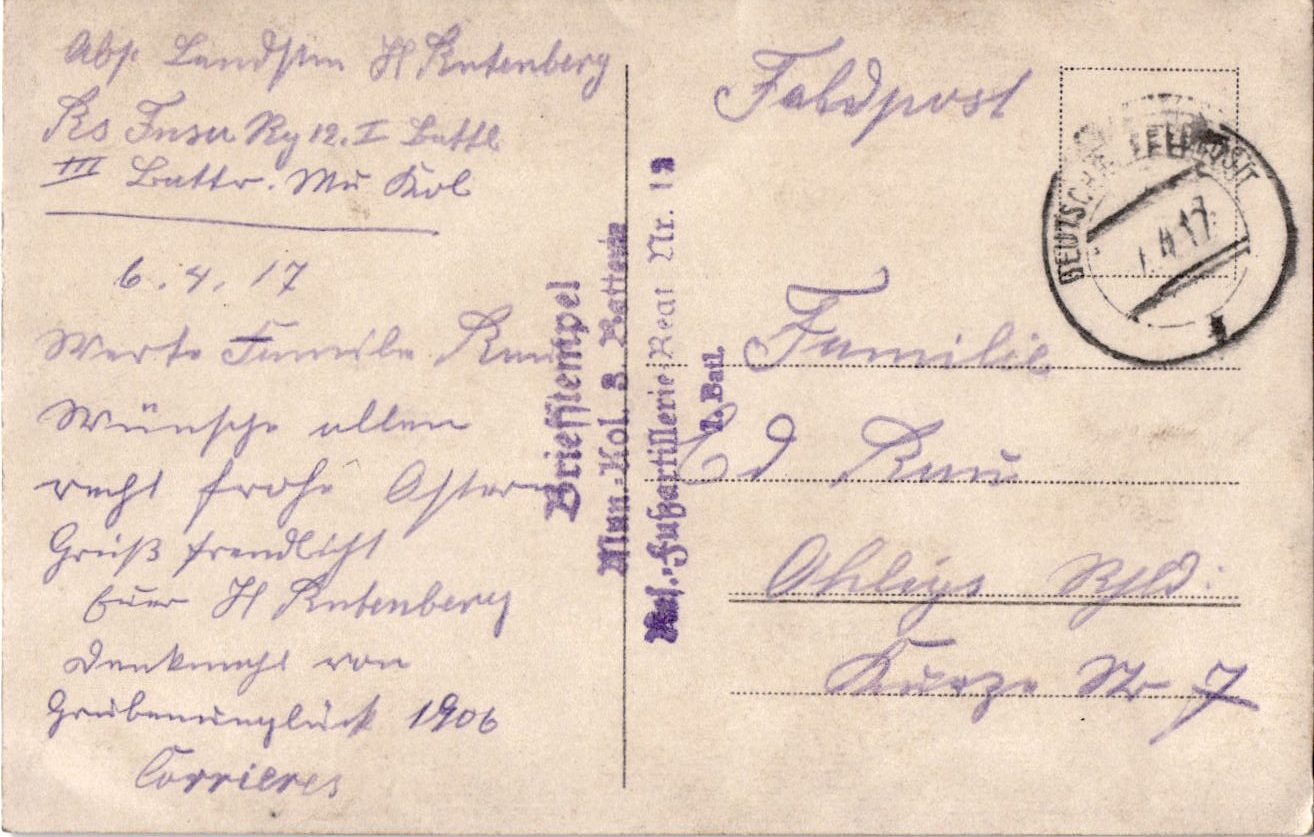 Abs. Landstm H Rutenberg
Rs Fusar Rg 12. I Battl
III Battr. Mu Kol
6. 4. 17
Werte Familie Rau
Wünsche allen
recht frohe Ostern
Grüß freudlicht
Euer H Rutenberg
Denkmahl von
Grubenunglück 1906
Corrieres
Briefstempel
Mun.-Kol. 3. Batterie
Res.-Fußartillerie-Regt Nr. 12
1. Batl.
Feldpost
DEUTSCHE FELDPOST
4 17
Familie
Ed Rau
Ohligs Rhld:
Kurze Str 7